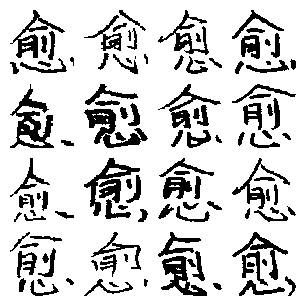 愈愈愈愈
愈愈愈愈
愈愈愈愈
愈愈愈愈